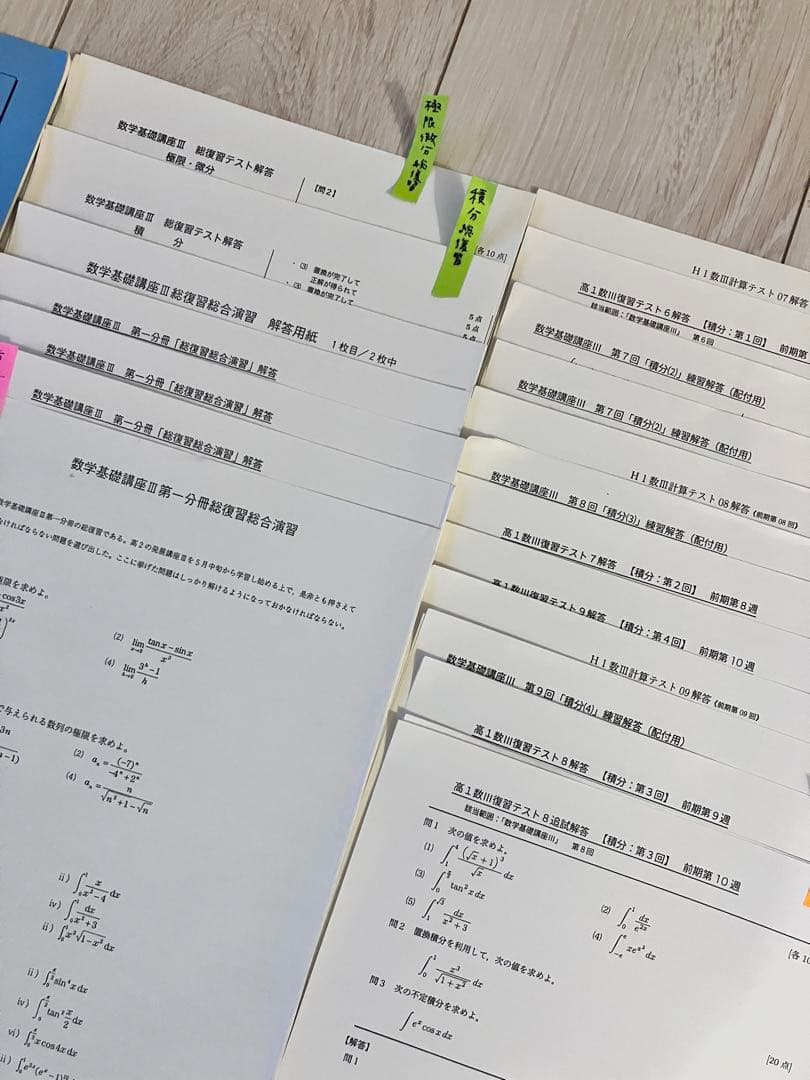 極限微分総復習
積分総復習
数学基礎講座Ⅲ 総復習テスト解答
極限・微分
【問2】
[各10点]
数学基礎講座Ⅲ 総復習テスト解答
積 分
・(3) 置換が完了して
正解が得られて
・(3) 置換が完了して
5点
5点
5点
数学基礎講座Ⅲ総復習総合演習 解答用紙 1枚目/2枚中
数学基礎講座Ⅲ 第一分冊「総復習総合演習」解答
数学基礎講座Ⅲ 第一分冊「総復習総合演習」解答
数学基礎講座Ⅲ 第一分冊「総復習総合演習」解答
数学基礎講座Ⅲ第一分冊総復習総合演習
数学基礎講座Ⅲ第一分冊の総復習である。高2の発展講座Ⅲを5月中旬から学習し始める上で,是非とも押さえて
なければならない問題を選び出した。ここに挙げた問題はしっかり解けるようになっておかなければならない。
極限を求めよ。
(2) lim x→0 (tan x − sin x)/x³
(4) lim h→0 (3^h − 1)/h
で与えられる数列の極限を求めよ。
(2) aₙ = (−7)ⁿ/(−4ⁿ+2ⁿ)
(4) aₙ = n/(√(n²+1) − √n)
ii) ∫₀¹ x/(x²−4) dx
iv) ∫₀¹ dx/(x²+3)
ii) ∫₀¹ x³√(1−x²) dx
ii) ∫₀^(π/2) sin⁴x dx
iv) ∫₀^(π/2) tan² x/2 dx
vi) ∫₀^(π/2) x cos4x dx
HⅠ数Ⅲ計算テスト07解答
高1数Ⅲ復習テスト6解答 【積分:第1回】 前期第
該当範囲:「数学基礎講座Ⅲ」 第6回
数学基礎講座Ⅲ 第7回「積分(2)」練習解答(配付用)
数学基礎講座Ⅲ 第7回「積分(2)」練習解答(配付用)
HⅠ数Ⅲ計算テスト08解答(前期第08回)
数学基礎講座Ⅲ 第8回「積分(3)」練習解答(配付用)
高1数Ⅲ復習テスト7解答 【積分:第2回】 前期第8週
高1数Ⅲ復習テスト9解答 【積分:第4回】 前期第10週
HⅠ数Ⅲ計算テスト09解答(前期第09回)
数学基礎講座Ⅲ 第9回「積分(4)」練習解答(配付用)
高1数Ⅲ復習テスト8解答 【積分:第3回】 前期第9週
高1数Ⅲ復習テスト8追試解答 【積分:第3回】 前期第10週
該当範囲:「数学基礎講座Ⅲ」 第8回
問1 次の値を求めよ。
(1) ∫₁⁴ (√x+1)³/√x dx
(2) ∫₀¹ dx/e^(2x)
(3) ∫₀^(π/4) tan²x dx
(4) ∫₋ₑ^e xe^(x²) dx
(5) ∫₁^(√3) dx/(x²+3)
[各10
問2 置換積分を利用して,次の値を求めよ。
∫₀¹ x³/√(1+x²) dx
問3 次の不定積分を求めよ。
∫eˣcos x dx
[20点]
【解答】
問1